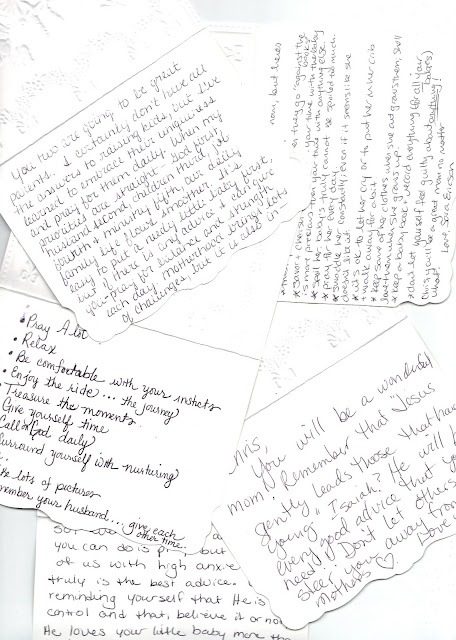 You two are going to be great
parents. I certainly don't have all
the answers to raising kids, but I've
learned to embrace their uniqueness
and pray for them daily. When my
priorities are straight - God first,
husband second, children third,
youth & ministry fifth, our daily
family life flows smoother. It's
easy to put a needy little baby first,
but if there is any advice I can give
you-pray for balance and strength
each day. Motherhood brings lots
of challenges, but it is also
mom, but here's
when they go "against the
your time with the baby
is more precious than your time with anything else.
* Spoil her - babies truly cannot be spoiled too much.
* pray for her every day
* swaddle her constantly, even if it seems like she
doesn't like it
* it's ok to let her cry or to put her in her crib
& walk away for a bit
* keep some of her clothes when she outgrows them, she'll
love them when she grows up.
* keep a baby book & record everything for all your
* don't let yourself feel guilty about anything!
(his) you will be a great mom no matter
what!
Love, Sara Ericson
• Pray A lot
• Relax
• Be comfortable with your instincts
• Enjoy the ride... the journey
Treasure the moments
Give yourself time
Call on God daily
Surround yourself with nurturing
lots of pictures
remember your husband... give each
other time.
You will be a wonderful
mom. Remember that Jesus
"gently leads those that have
young." Isaiah? He will be
every good advice that you
need. Don't let others
steer you away from
mothers ♡
you can do is
of us with high
truly is the best advice.
reminding yourself that He is
control and that, believe it or not
He loves your little baby more